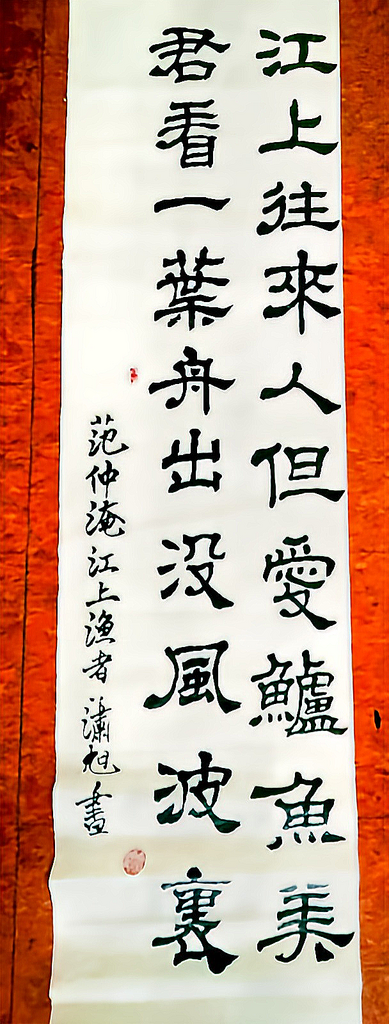 江上往來人但愛鱸魚美
君看一葉舟出没風波裏
范仲淹江上漁者瀟旭書